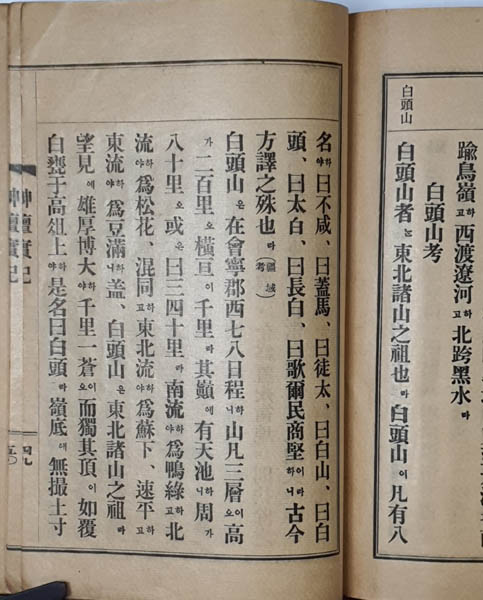 踰鳥嶺하고西渡遼河하고北跨黑水라
白頭山考
白頭山者는東北諸山之祖也라白頭山이凡有八
白頭山
名하야曰不咸、曰蓋馬、曰徒太、曰白山、曰白
頭、曰太白、曰長白、曰歌爾民商堅이라하니古今
方譯之殊也라(疆域考)
白頭山은在會寧郡西七八日程하니山凡三層이오高
가二百里오橫亘이千里라其巓에有天池하니周가
八十里오或은曰三四十里라南流하야爲鴨綠하고北
流하야爲松花、混同하고東北流하야爲蘇下、速平하고
東流하야爲豆滿하니蓋、白頭山은東北諸山之祖라
望見에雄厚博大하야千里一蒼이오而獨其頂이如覆
白甕于高俎上하야是名曰白頭라嶺底에無撮土寸
神壇實記
神壇實記
四九
五〇